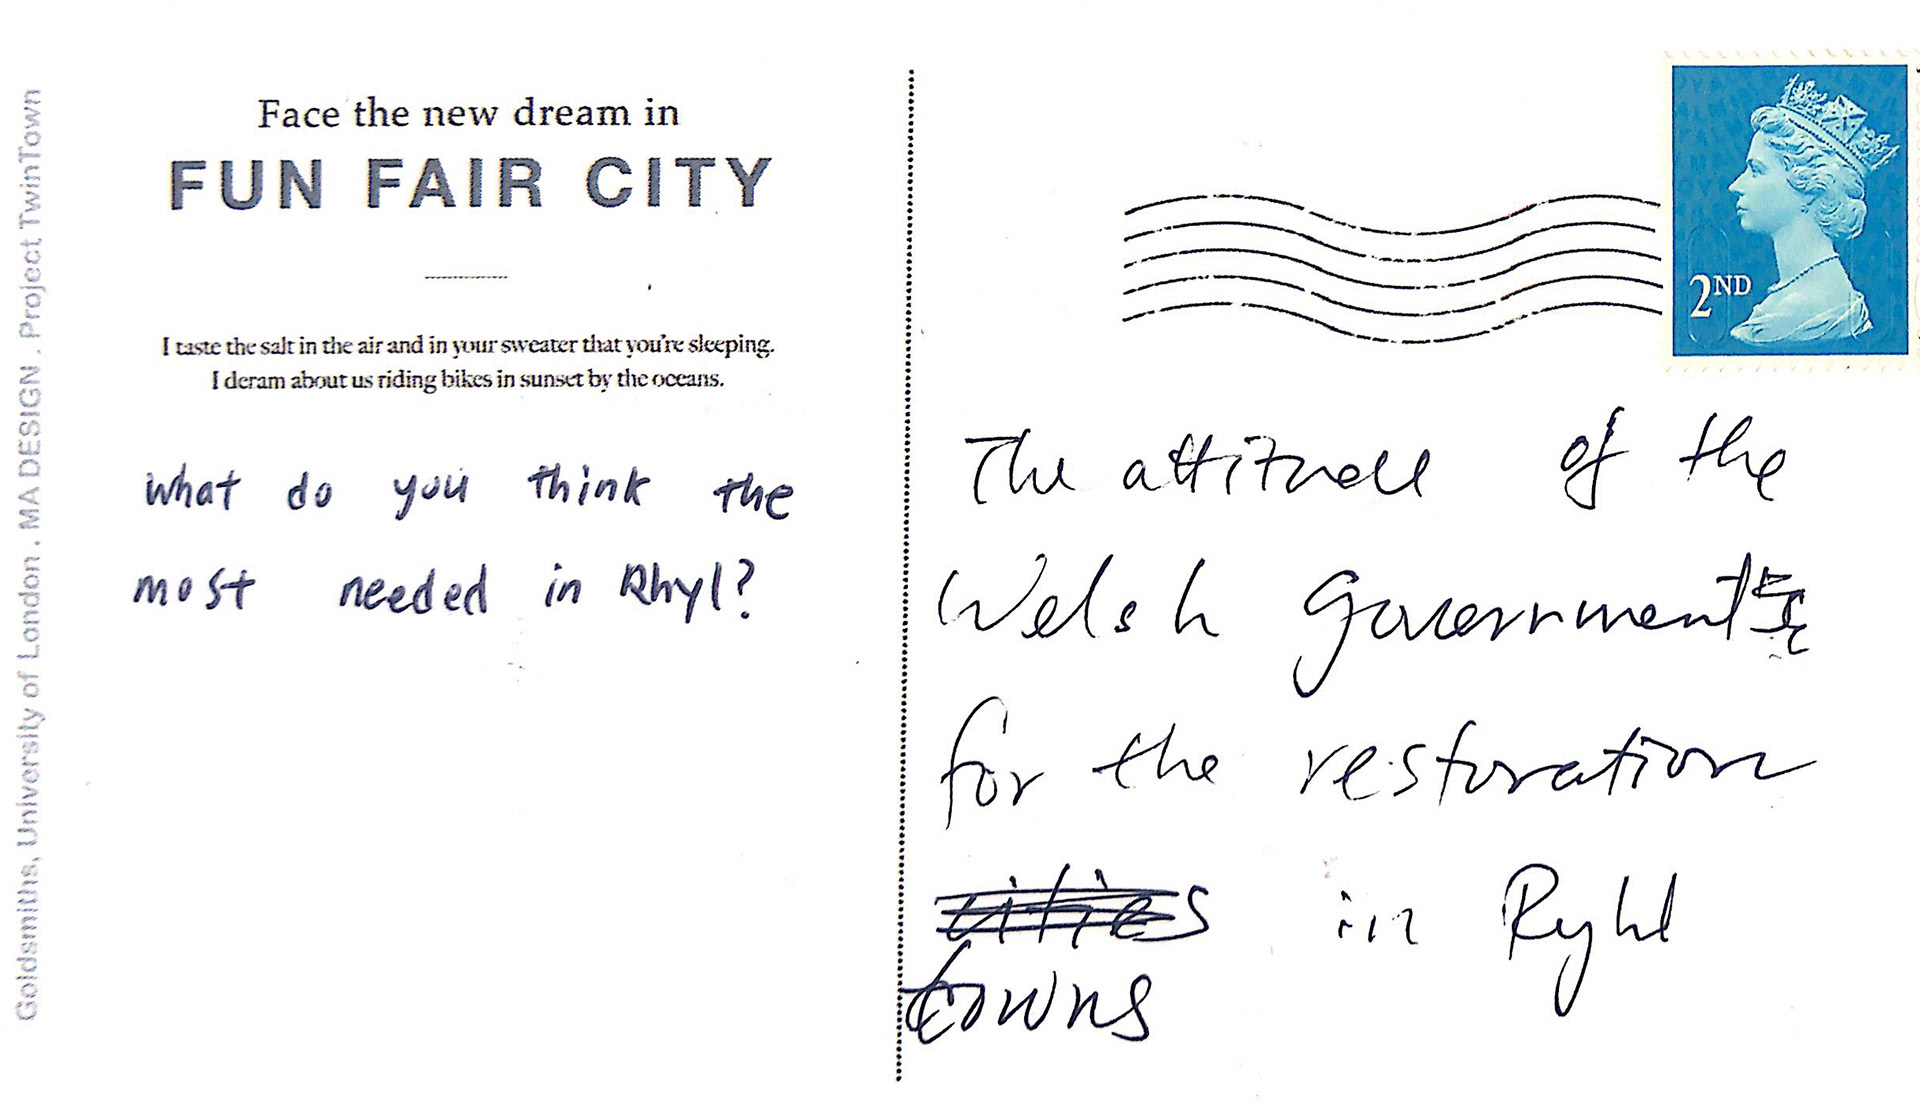 Goldsmiths, University of London . MA DESIGN . Project TwinTown
Face the new dream in
FUN FAIR CITY
I taste the salt in the air and in your sweater that you're sleeping.
I deram about us riding bikes in sunset by the oceans.
what do you think the
most needed in Rhyl?
2ND
The attitude of the
Welsh Government
for the restoration
cities in Ryhl
towns